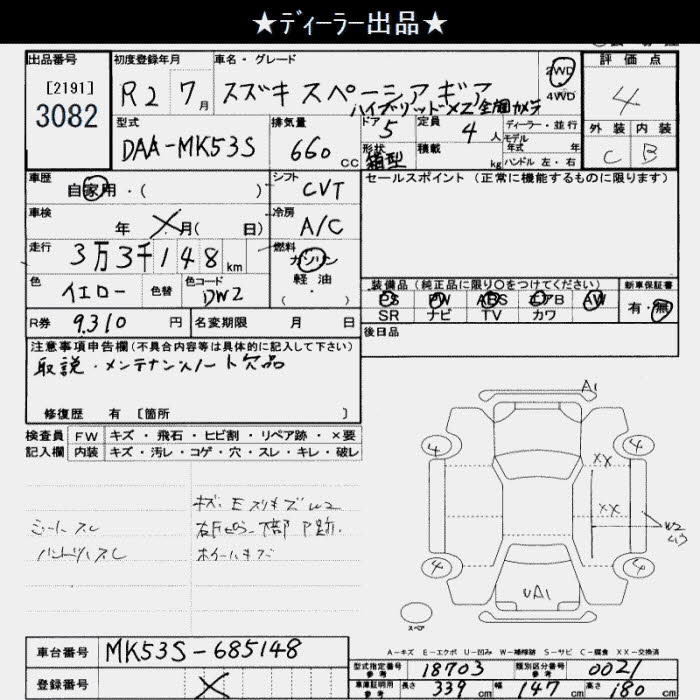 ★ディーラー出品★
出品番号 [2191] 3082
初度登録年月 R2 7月
車名・グレード スズキ スペーシアギア
ハイブリッドXZ 全周カメラ
2WD 4WD
評価点 4
外装 C 内装 B
型式 DAA-MK53S
排気量 660 cc
ドア 5 定員 4人
形状 箱型 積載 kg
ディーラー・並行
モデル年式 年
ハンドル 左・右
車歴 自家用・( )
シフト CVT
セールスポイント (正常に機能するものに限ります)
車検 年 X月( 日)
冷房 A/C
走行 3万3千148km
燃料 ガソリン 軽油 ( ・ )
色 イエロー 色替 色コード DW2
装備品(純正品に限り○をつけてください)
PS PW ABS エアB AW
SR ナビ TV カワ
新車保証書 有・無
R券 9,310円 名変期限 月 日
後日品
注意事項申告欄(不具合内容等は具体的に記入して下さい)
取説・メンテナンスノート欠品
修復歴 有 [箇所 ]
検査員 FW キズ・飛石・ヒビ割・リペア跡・×要
記入欄 内装 キズ・汚レ・コゲ・穴・スレ・キレ・破レ
シートスレ
ハンドルスレ
ホイールキズ
A1
4 4
XX
XX
W2
4 4
UA1
スペア
A-キズ E-エクボ U-凹み W-補修跡 S-サビ C-腐食 XX-交換済
車台番号 MK53S-685148
登録番号 X
型式指定番号 参考 18703 類別区分番号 参考 0021
車庫証明用 参考 長さ 339cm 幅 147cm 高さ 180cm